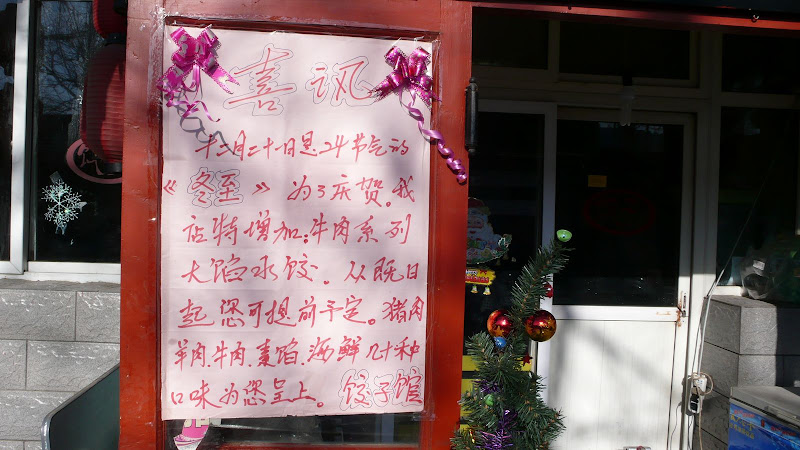 喜讯
十二月二十一日是24节气的
《冬至》为了庆贺。我
店特增加:牛肉系列
大馅水饺.从既日
起您可提前予定。猪肉
羊肉.牛肉.素馅.海鲜几十种
口味为您呈上。饺子馆